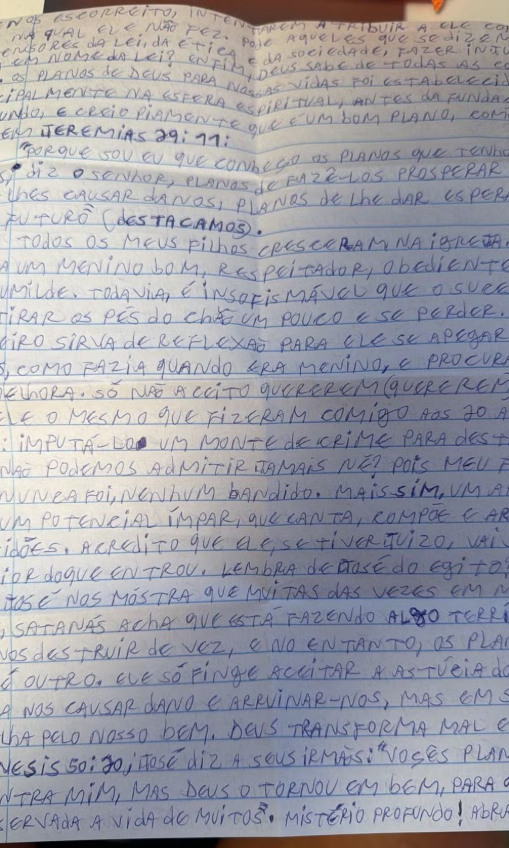 NOS ESCORREITO, INTENTAREM ATRIBUIR A ELE CO
NA QUAL ELE NÃO FEZ. PODE AQUELES QUE SE DIZEN
ENSORES DA LEI, DA ÉTICA E DA SOCIEDADE, FAZER INJU
EM NOME DA LEI? ENFIM, DEUS SABE DE TODAS AS CO
. OS PLANOS DE DEUS PARA NOSSAS VIDAS FOI ESTABELECID
CIPALMENTE NA ESFERA ESPIRITUAL, ANTES DA FUNDA
UNDO, E CREIO PIAMENTE QUE É UM BOM PLANO, COM
EM JEREMIAS 29:11:
"PORQUE SOU EU QUE CONHEÇO OS PLANOS QUE TENHO
S, DIZ O SENHOR, PLANOS DE FAZÊ-LOS PROSPERAR
LHES CAUSAR DANOS, PLANOS DE LHE DAR ESPER
FUTURO" (DESTACAMOS).
TODOS OS MEUS FILHOS CRESCERAM NA IGREJA.
A UM MENINO BOM, RESPEITADOR, OBEDIENTE
UMILDE. TODAVIA, É INSOFISMÁVEL QUE O SUCE
TIRAR OS PÉS DO CHÃO UM POUCO E SE PERDER.
EIRO SIRVA DE REFLEXÃO PARA ELE SE APEGAR
S, COMO FAZIA QUANDO ERA MENINO, E PROCURA
MELHORA. SÓ NÃO ACEITO QUEREREM (QUEREREM
ELE O MESMO QUE FIZERAM COMIGO AOS 20 A
: IMPUTÁ-LO UM MONTE DE CRIME PARA DEST
NÃO PODEMOS ADMITIR JAMAIS NÉ? POIS MEU F
NUNCA FOI, NENHUM BANDIDO. MAIS SIM, UM A
UM POTENCIAL ÍMPAR, QUE CANTA, COMPÕE E AR
IDÕES. ACREDITO QUE ELE, SE TIVER JUIZO, VAI S
IOR DO QUE ENTROU. LEMBRA DE JOSÉ DO EGITO?
JOSÉ NOS MOSTRA QUE MUITAS DAS VEZES EM N
, SATANÁS ACHA QUE ESTÁ FAZENDO ALGO TERRÍ
NOS DESTRUIR DE VEZ, E NO ENTANTO, OS PLA
É OUTRO. ELE SÓ FINGE ACEITAR A ASTÚCIA DO
A NOS CAUSAR DANO E ARRUINAR-NOS, MAS EM S
LHA PELO NOSSO BEM. DEUS TRANSFORMA MAL E
NESIS 50:20, JOSÉ DIZ A SEUS IRMÃS: "VOÇÊS PLAN
NTRA MIM, MAS DEUS O TORNOU EM BEM, PARA Q
SERVADA A VIDA DE MUITOS". MISTÉRIO PROFUNDO! ABRA